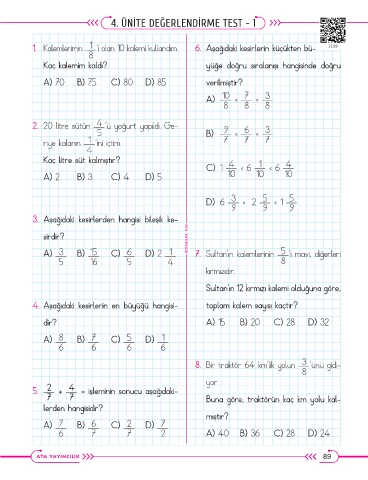 4. ÜNİTE DEĞERLENDİRME TEST - 1
1. Kalemlerimin 1/8 'i olan 10 kalemi kullandım.
Kaç kalemim kaldı?
A) 70 B) 75 C) 80 D) 85
2. 20 litre sütün 4/5 'ü yoğurt yapıldı. Ge-
riye kalanın 1/4 'ini içtim.
Kaç litre süt kalmıştır?
A) 2 B) 3 C) 4 D) 5
3. Aşağıdaki kesirlerden hangisi bileşik ke-
sirdir?
A) 3/5 B) 15/16 C) 6/5 D) 2 1/4
4. Aşağıdaki kesirlerin en büyüğü hangisi-
dir?
A) 8/6 B) 7/6 C) 5/6 D) 1/6
5. 2/7 + 4/7 = işleminin sonucu aşağıdaki-
lerden hangisidir?
A) 7/6 B) 6/7 C) 2/7 D) 7/2
6. Aşağıdaki kesirlerin küçükten bü-
yüğe doğru sıralanışı hangisinde doğru
verilmiştir?
A) 10/8 < 7/8 < 3/8
B) 9/7 < 6/7 < 3/7
C) 1 4/10 < 6 1/10 < 6 4/10
D) 6 3/9 < 2 5/9 < 1 5/9
7. Sultan'ın kalemlerinin 5/8 'i mavi, diğerleri
kırmızıdır.
Sultan'ın 12 kırmızı kalemi olduğuna göre,
toplam kalem sayısı kaçtır?
A) 15 B) 20 C) 28 D) 32
8. Bir traktör 64 km'lik yolun 3/8 'ünü gidi-
yor.
Buna göre, traktörün kaç km yolu kal-
mıştır?
A) 40 B) 36 C) 28 D) 24
ATA YAYINCILIK
89